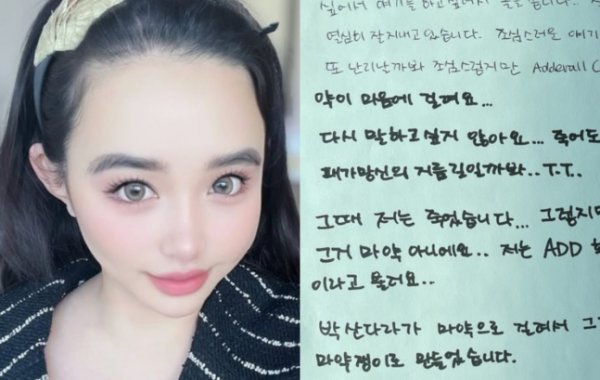 싶어서 얘기를 하고 싶어서
열심히 잘지내고 있습니다. 조심스러운 얘기
또 난리날까봐 조심스럽지만 Adderall
약이 마음에 걸려요...
다시 말하고싶지 않아요... 죽어도
패가망신의 지름길일까봐..T.T..
그때 저는 죽었습니다... 그렇지만
그거 마약 아니에요.. 저는 ADD
이라고 물려요..
박산다라가 마약으로 걸려서 그
마약쟁이로 만들었습니다.